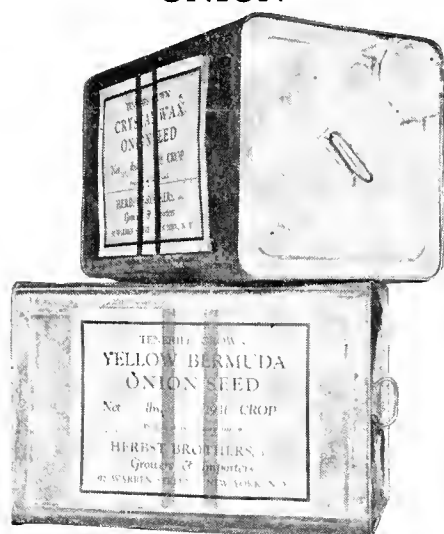 ONION
CRYSTAL WAX
ONION SEED
Net lbs. CROP
HERBST BROTHERS,
Growers & Importers
TENERIFFE GROWN
YELLOW BERMUDA
ONION SEED
Net lbs. CROP
HERBST BROTHERS,
Growers & Importers
92 WARREN STREET NEW YORK, N.Y.